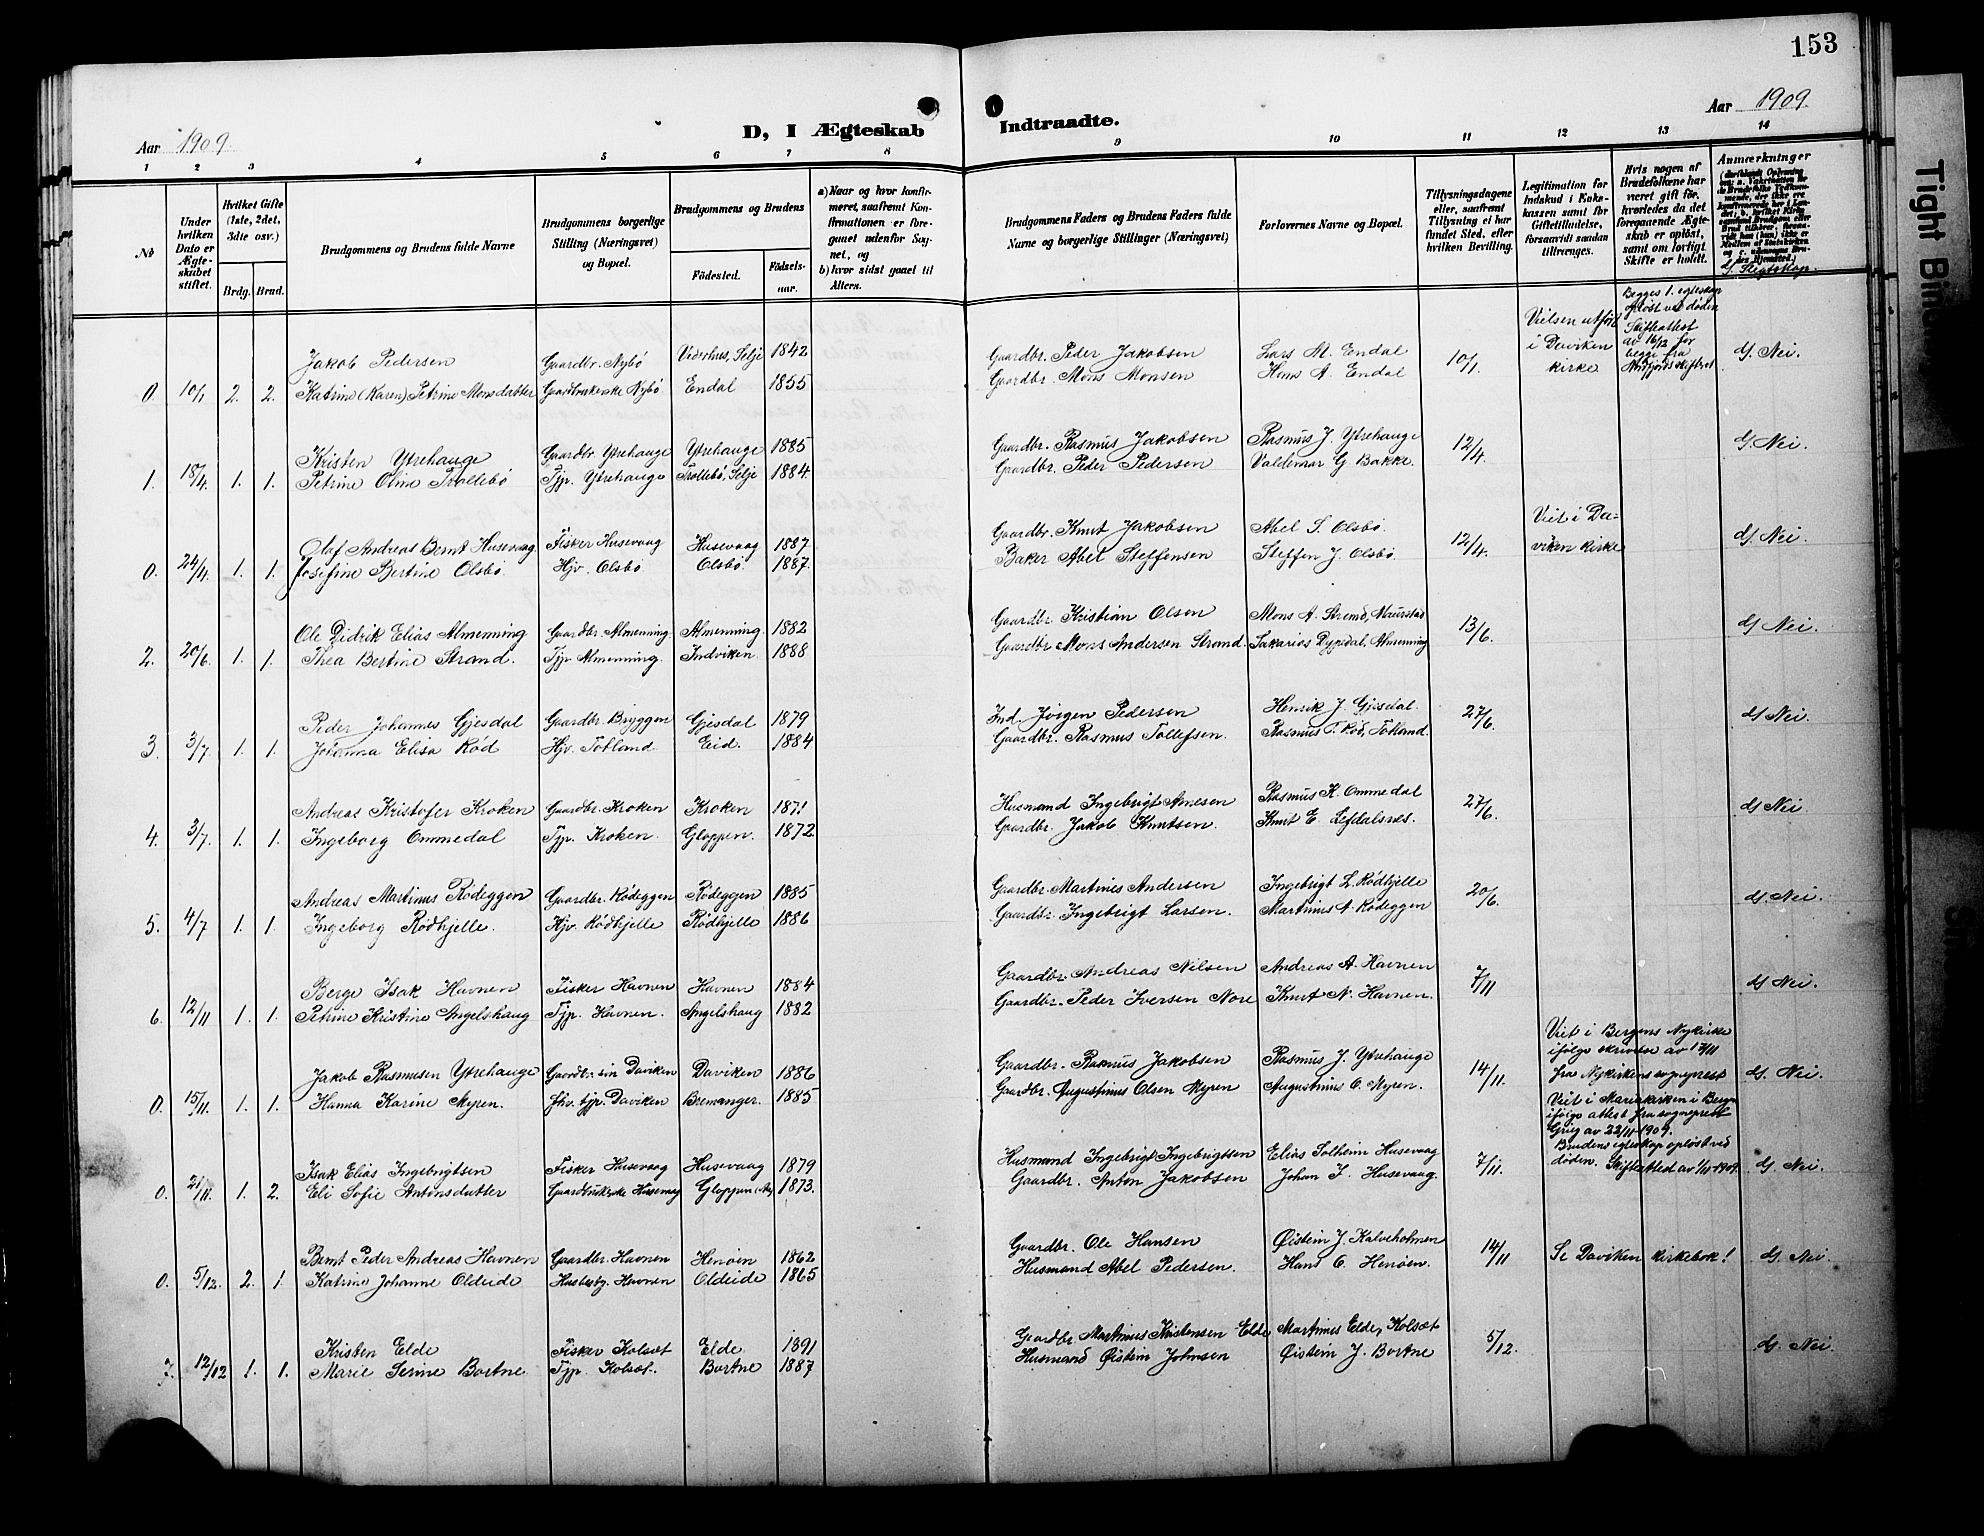 153
Aar 1909.
Aar 1909.
D, I Ægteskab Indtraadte.
1 2 3 4 5 6 7 8 9 10 11 12 13 14
No
Under hvilken Dato er Ægteskabet stiftet.
Hvilket Gifte (1ste, 2det, 3dte osv.)
Brdg. Brud.
Brudgommens og Brudens fulde Navne
Brudgommens borgerlige Stilling (Næringsvei) og Bopæl.
Brudgommens og Brudens
Födested.
Födselsaar.
a) Naar og hvor konfirmeret, saafremt Konfirmationen er foregaaet udenfor Sognet, og
b) hvor sidst gaaet til Alters.
Brudgommens Faders og Brudens Faders fulde Navne og borgerlige Stillinger (Næringsvei)
Forlovernes Navne og Bopæl.
Tillysningsdagene eller, saafremt Tillysning ei har fundet Sted, efter hvilken Bevilling.
Legitimation for Indskud i Enkekassen samt for Giftetilladelse, forsaavidt saadan tiltrænges.
Hvis nogen af Brudefolkene har været gift för, hvorledes da det foregaaende Ægteskab er oplöst, samt om lovligt Skifte er holdt.
Anmærkninger
d/. Slegtskap.
Jakob Pedersen Gaardbr. Nybö Viderhus, Selje 1842 Gaardbr. Peder Jakobsen Lars M. Endal
0. 10/1 2. 2. Katrine (Karen) Petrine Monsdatter Gaardbrukerske Nybö Endal 1855 Gaardbr. Mons Monsen Hans A. Endal 10/1. Vielsen utfört i Daviken kirke
Begges 1. egteskap oplöst ved döden Skifteattest av 16/12 for begge fra Nordfjords skifteret d/. Nei.
Kristen Ytrehauge Gaardbr. Ytrehauge Ytrehauge 1885 Gaardbr. Rasmus Jakobsen Rasmus J. Ytrehauge
1. 18/4. 1. 1. Petrine Olina Trollebö Tjp. Ytrehauge Trollebö, Selje 1884. Gaardbr. Peder Pedersen Valdemar G Bakke. 12/4. d/. Nei.
Olaf Andreas Bernt Husevaag Fisker Husevaag Husevaag 1887 Gaardbr. Knut Jakobsen Abel S. Olsbö.
0. 24/4. 1. 1. Josefine Bertine Olsbö. Hjv. Olsbö Olsbö. 1887. Baker Abel Steffensen Steffen J. Olsbö. 12/4. Viet i Daviken kirke d/. Nei.
Ole Didrik Elias Almenning Gaardbr. Almenning. Almenning. 1882 Gaardbr. Kristian Olsen Mons A. Strand, Maurstad
2. 20/6. 1. 1. Thea Bertine Strand. Tjp. Almenning. Indviken. 1888 Gaardbr. Mons Andersen Strand. Sakarias Dypedal, Almenning 13/6. d/. Nei.
Peder Johannes Gjesdal Gaardbr. Bryggen Gjesdal 1879 Ind. Jörgen Pedersen Henrik J. Gjesdal.
3. 3/7. 1. 1. Johanna Elisa Röd Hjv. Totland. Eid. 1884 Gaardbr. Rasmus Tollefsen. Rasmus T. Röd, Totland. 27/6. d/. Nei.
Andreas Kristofer Kroken Gaardbr. Kroken Kroken 1871 Husmand Ingebrigt Arnesen Rasmus K. Ommedal
4. 3/7. 1. 1. Ingeborg Ommedal Tjp. Kroken. Gloppen. 1872 Gaardbr. Jakob Knutsen. Knut E. Lefdalsnes. 27/6. d/. Nei.
Andreas Martinus Rödeggen Gaardbr. Rödeggen Rödeggen 1885 Gaardbr. Martines Andersen Ingebrigt L. Rödhjelle
5. 4/7 1. 1. Ingeborg Rödhjelle. Hjv. Rödhjelle Rödhjelle 1886 Gaardbr. Ingebrigt Larsen. Martinus A. Rödeggen 20/6. d/. Nei.
Berge Isak Havnen Fisker Havnen Havnen 1884 Gaardbr. Andreas Nilsen Andreas A. Havnen
6. 12/11 1. 1. Petrine Kristine Angelshaug Tjp. Havnen. Angelshaug 1882 Gaardbr. Peder Iversen Nore Knut N. Havnen. 7/11 d/. Nei.
Jakob Rasmusen Ytrehauge Gaardbr. sön Daviken Daviken 1886 Gaardbr. Rasmus Jakobsen Rasmus J. Ytrehauge
0. 15/11. 1. 1. Hanna Karine Myren. Hhv. tjp. Daviken Bremanger. 1885 Gaardbr. Augustinus Olsen Myren Augustinus O. Myren. 14/11. Viet i Bergens Nykirke ifölge skrivelse av 17/11 fra Nykirkens sogneprest d/. Nei.
Isak Elias Ingebrigtsen Fisker Husevaag Husevaag 1879 Husmand Ingebrigt Ingebrigtsen Elias Solheim Husevaag
0. 21/11. 1. 2. Eli Sofie Antonsdatter Gaardbrukerske Husevaag Gloppen 1873. Gaardbr. Anton Jakobsen Johan J. Husevaag. 7/11. Viet i Mariakirken i Bergen ifölge attest fra sogneprest Grieg av 22/11 1909.
Brudens egteskap oplöst ved döden. Skifteattest av 1/11 1909. d/. Nei.
Bernt Peder Andreas Havnen Gaardbr. Havnen Henöen 1862 Gaardbr. Ole Hansen Øistein J. Kalveholmen
0. 5/12. 2. 1. Katrine Johanne Oldeide Husbesty. Havnen Oldeide 1865 Husmand Abel Pedersen. Hans O. Henöen. 14/11 Se Daviken kirkebok! d/. Nei.
Kristen Elde Fisker Kolset Elde 1891 Gaardbr. Martinus Kristensen Elde Martinus Elde, Kolsæt
7. 12/12 1. 1. Marie Serine Bortne Tjp. Kolset. Bortne 1887 Husmand Øistein Johnsen Øistein J. Bortne 5/12. d/. Nei.
Tight Bin